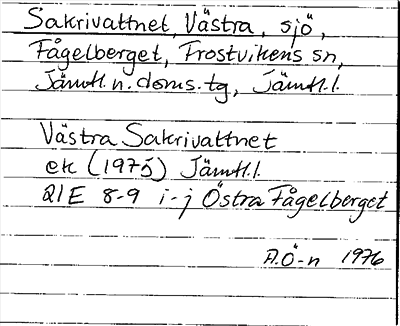 Sakrivattnet, Västra, sjö,
Fågelberget, Frostvikens sn,
Jämtl. n. doms. tg, Jämtl. l.
Västra Sakrivattnet
ek (1975) Jämtl. l.
21E 8-9 i-j Östra Fågelberget
A.Ö-n 1976